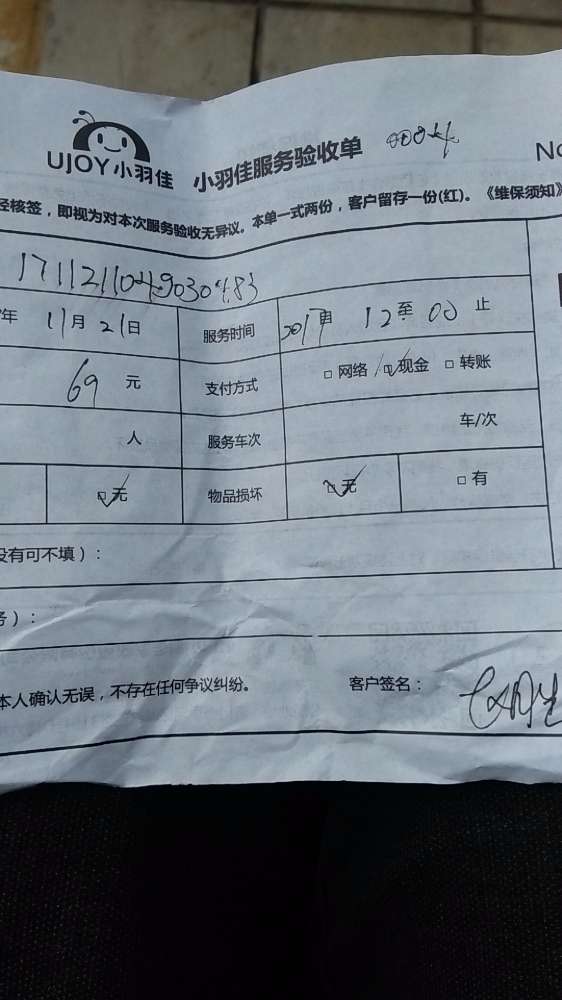 UJOY小羽佳 小羽佳服务验收单 0004 No
经核签，即视为对本次服务验收无异议。本单一式两份，客户留存一份(红)。《维保须知》
1711211049030483
年 11月21日 服务时间 自 12至00止
69 元 支付方式 □ 网络 ☑ 现金 □ 转账
人 服务车次 车/次
☑ 无 物品损坏 ☑ 无 □ 有
没有可不填）：
务）：
本人确认无误，不存在任何争议纠纷。 客户签名：